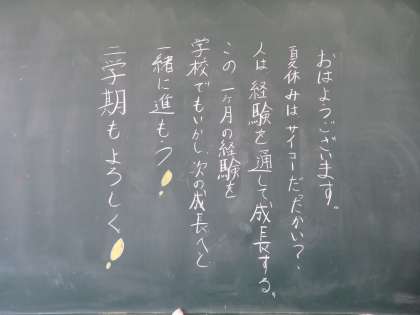 おはようございます。
夏休みはサイコーだったかい？
人は経験を通して成長する。
この一ヶ月の経験を
学校でもいかし、次の成長へと
一緒に進もう！
二学期もよろしく！